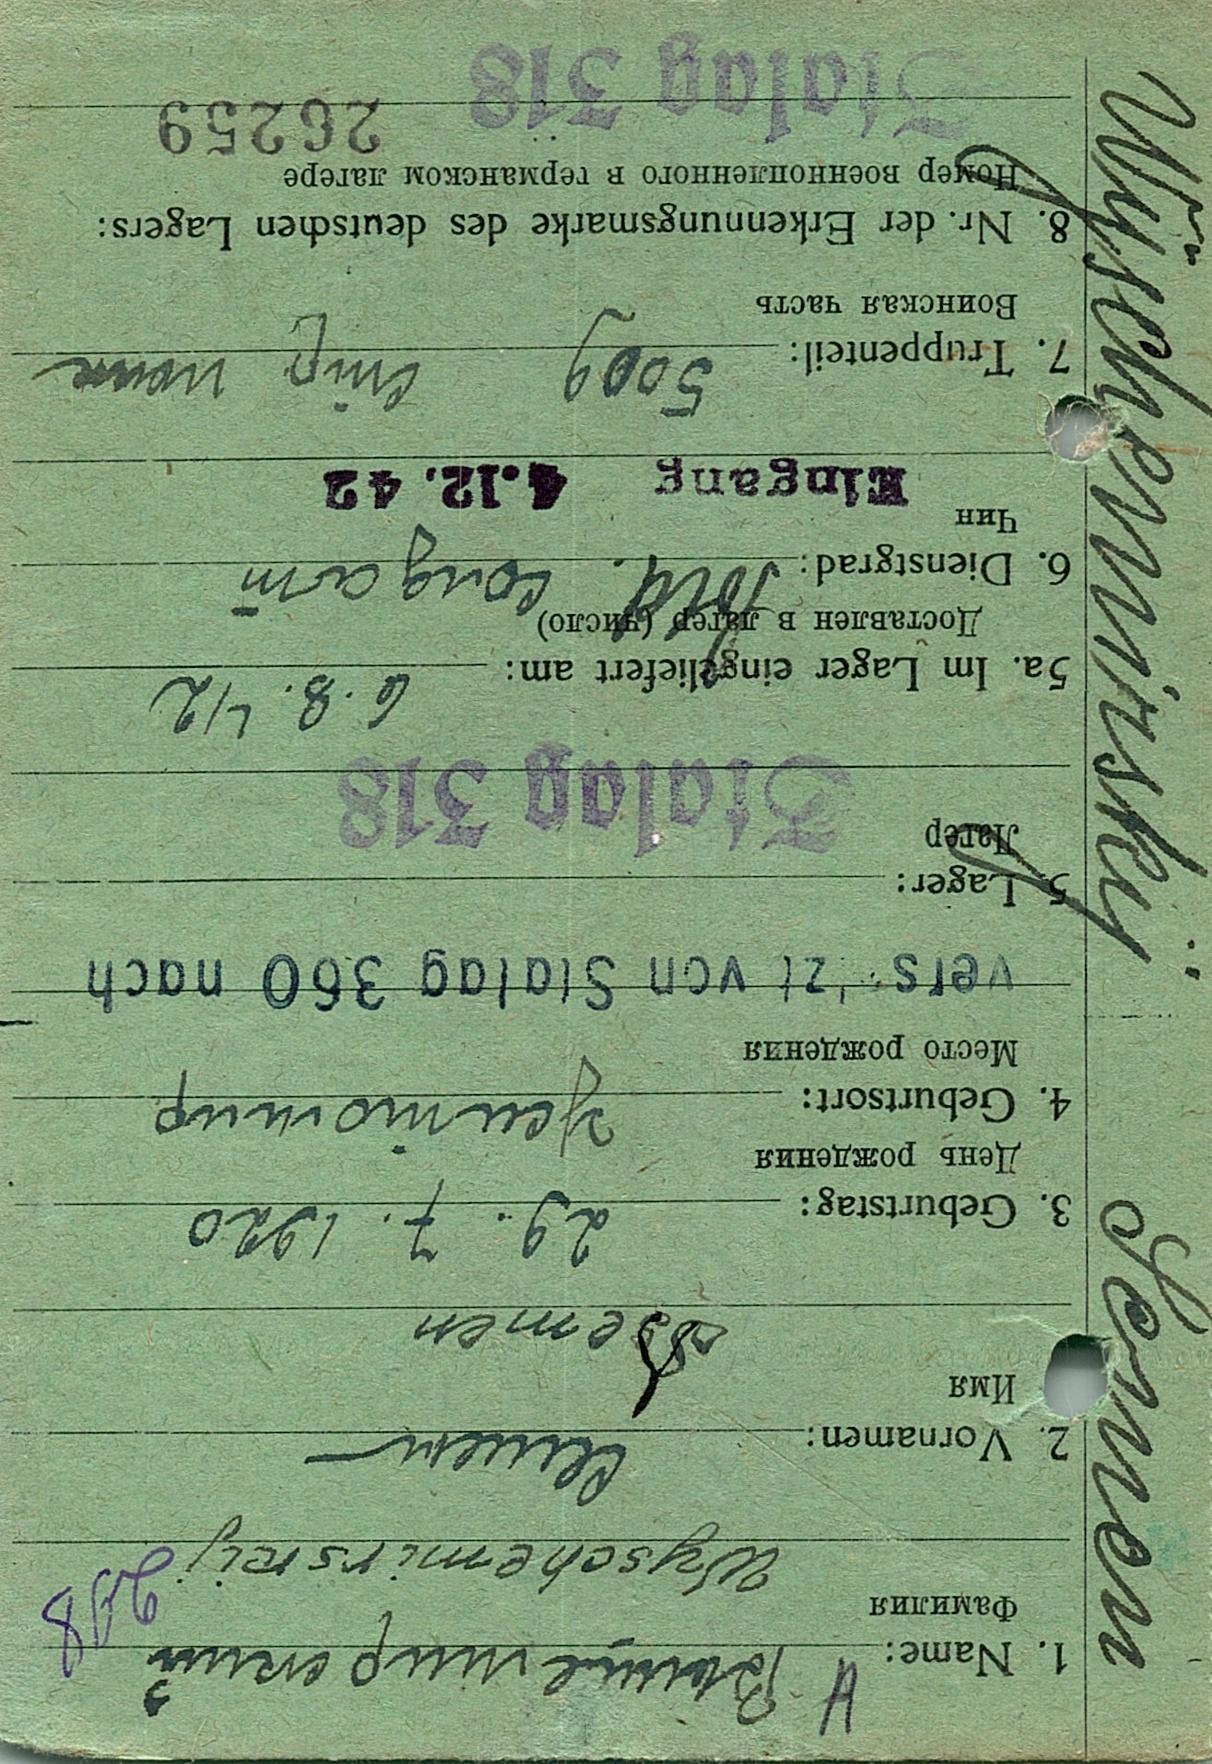 Wyschemirskij Semen
1. Name: Вышемирский
Фамилия
Wyschemirskij
2. Vornamen: Семен
Имя
Semen
3. Geburtstag: 29. 7. 1920
День рождения
4. Geburtsort:
Место рождения
vers. 'zt von Stalag 360 nach
5. Lager:
Лагер
Stalag 318
5a. Im Lager eingeliefert am: 6. 8. 42
Доставлен в лагер (число)
6. Dienstgrad: Sold. Солдат
Чин
Eingang 4.12.42
7. Truppenteil:
Воинская часть
8. Nr. der Erkennungsmarke des deutschen Lagers:
Номер военнопленного в германском лагере
Stalag 318 26259